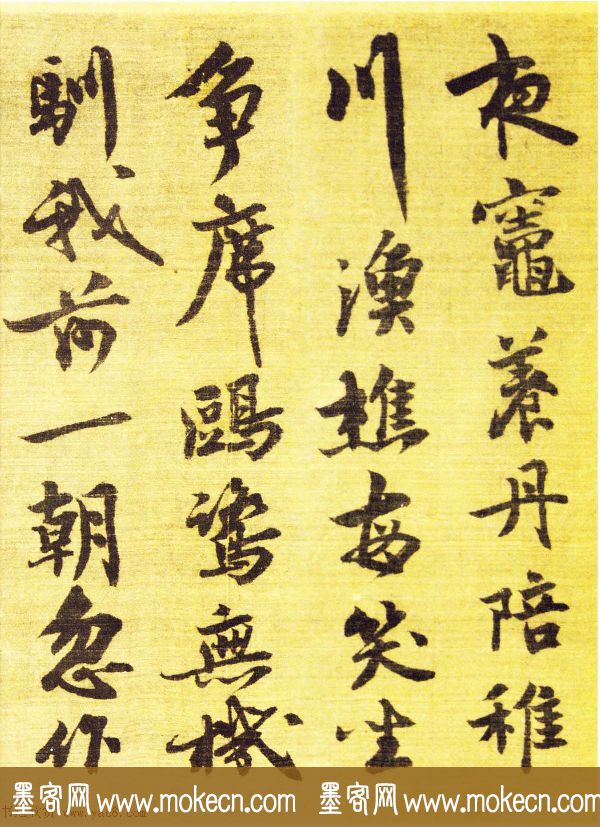 夜竈養丹陪稚
川漁樵每笑坐
争席鷗鷺無機
馴我前一朝忽作
墨客网 www.mokecn.com 墨客网 www.mokecn.com